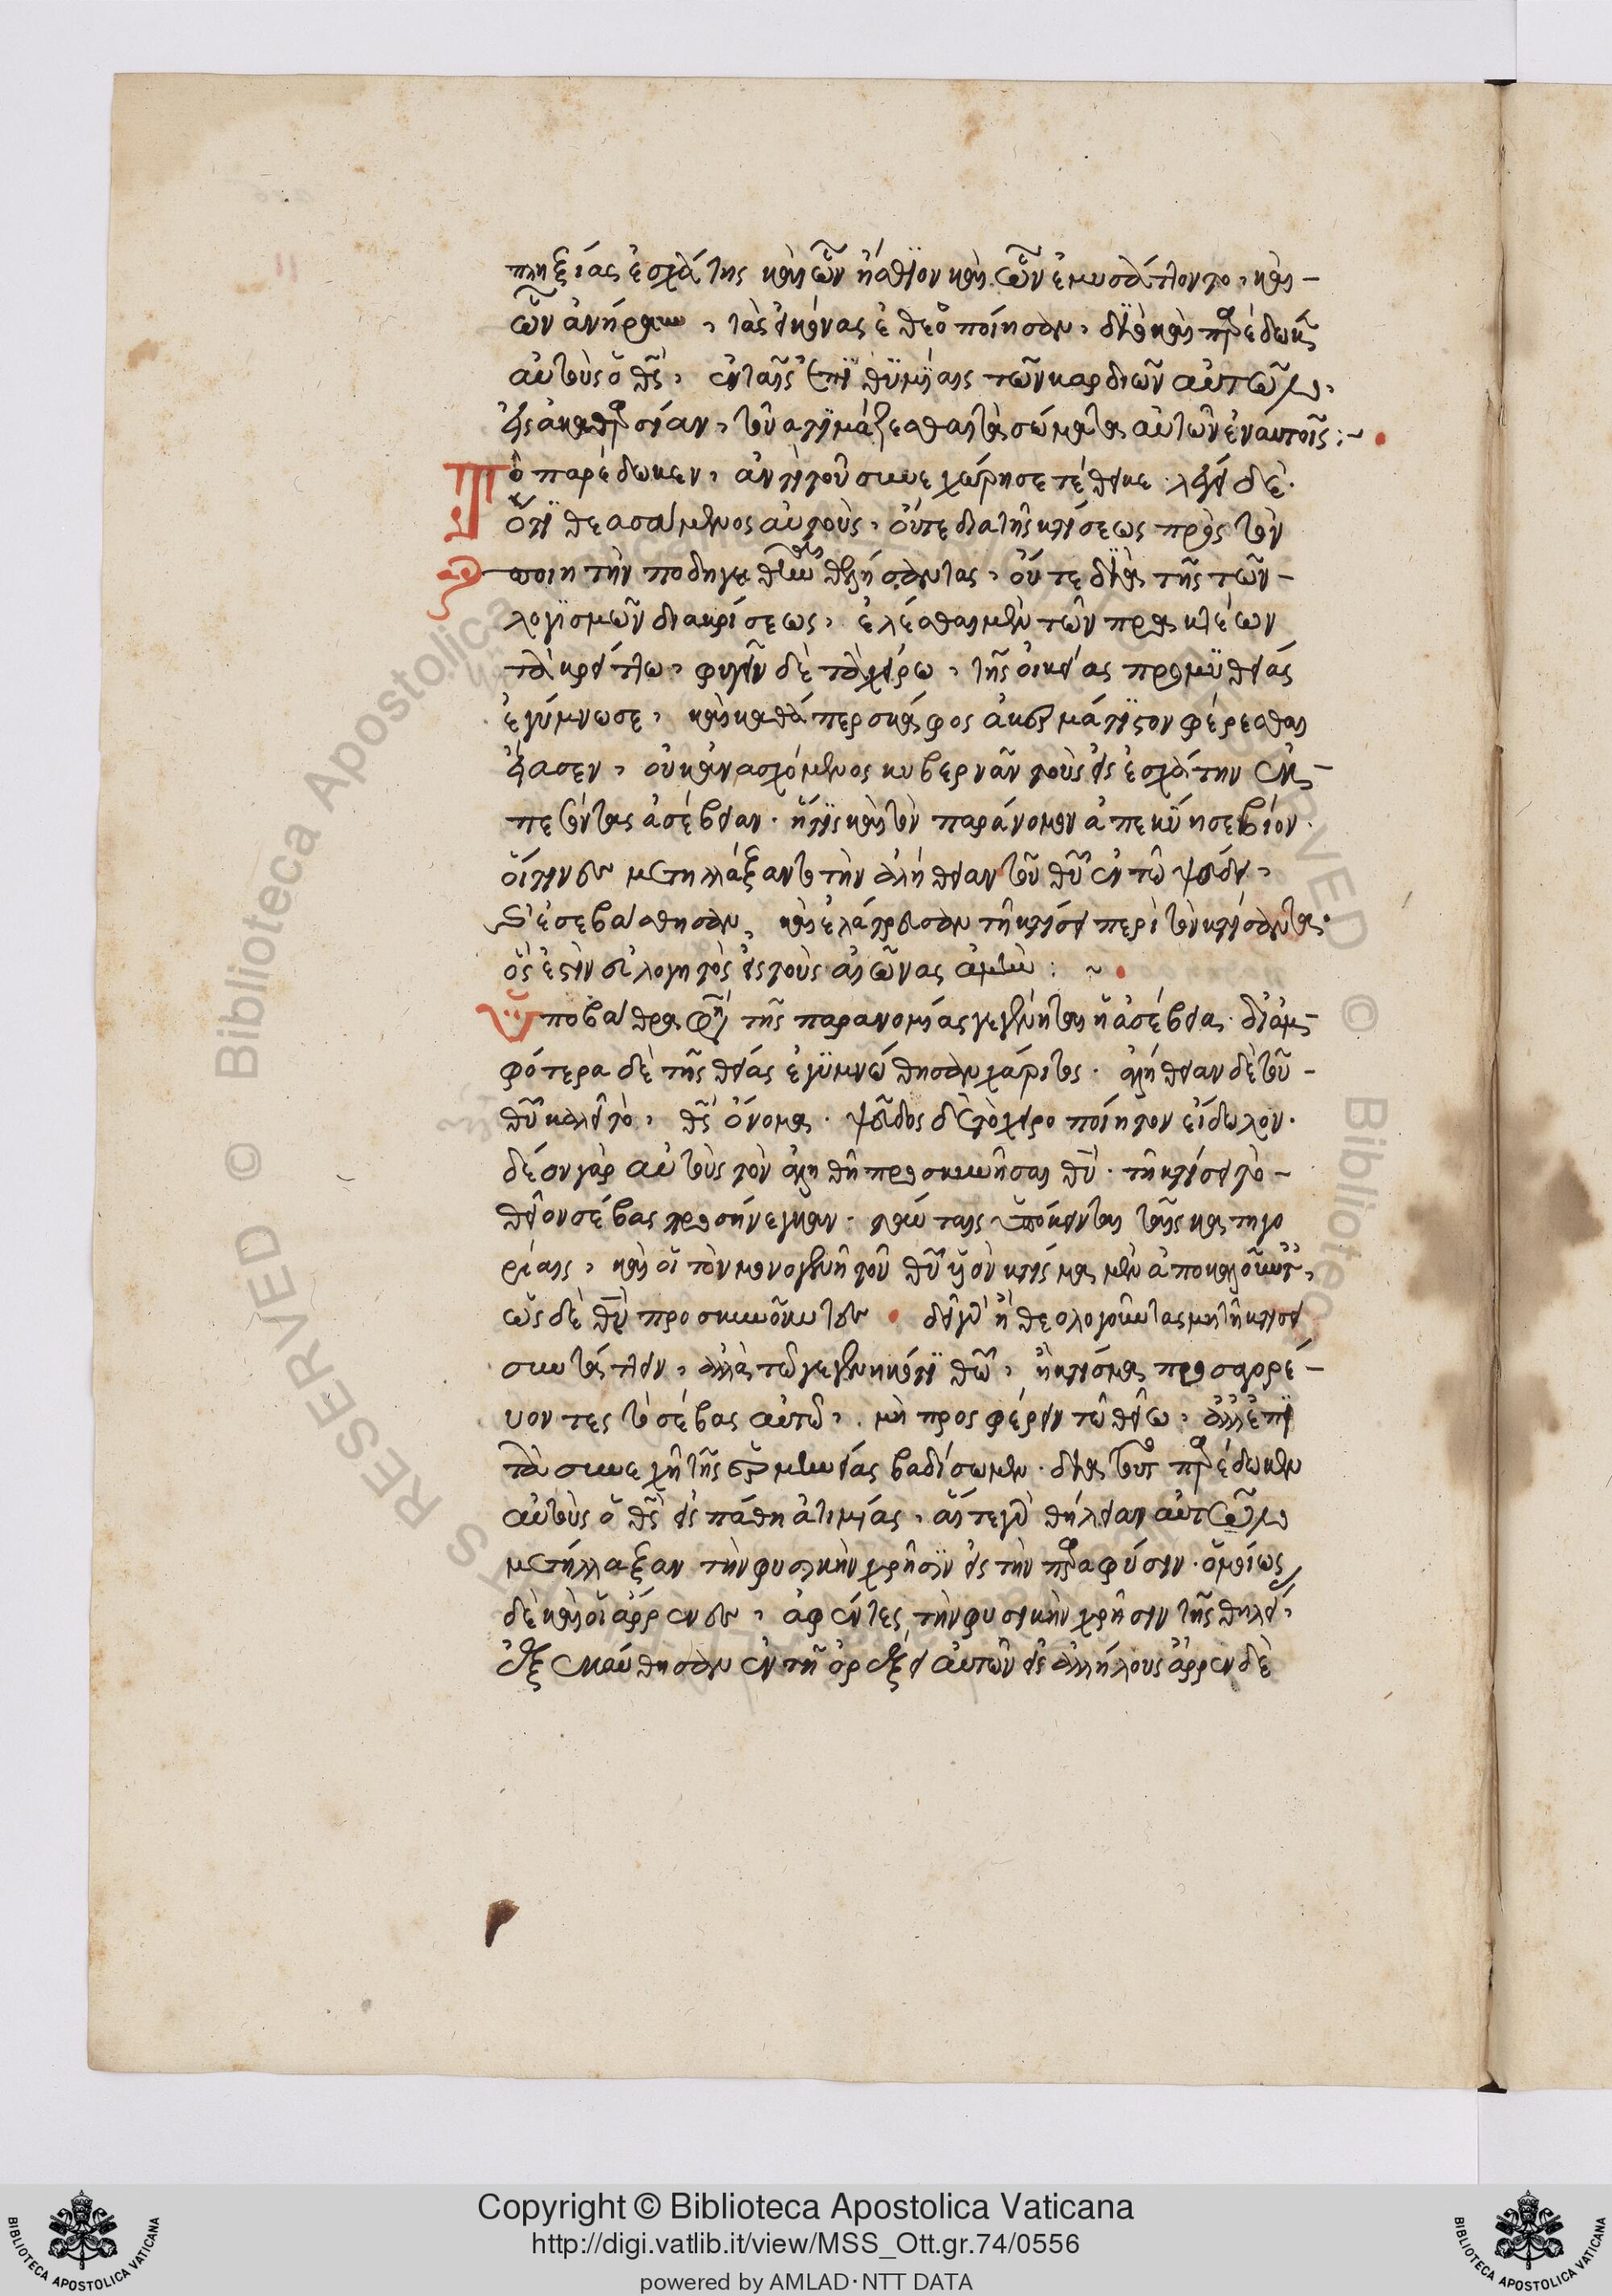 πληξίας ἐσχάτης καὶ ὧν ἤσθιον καὶ ὧν ἐμυσάττοντο, καὶ
ὧν ἀνήρουν, τὰς εἰκόνας ἐθεοποίησαν, διὸ καὶ παρέδωκε
αὐτοὺς ὁ θς, ἐν ταῖς ἐπιθυμίαις τῶν καρδιῶν αὐτῶν,
εἰς ἀκαθαρσίαν, τοῦ ἀτιμάζεσθαι τὰ σώματα αὐτῶν ἐν αὑτοῖς :~
Τὸ παρέδωκεν, ἀντὶ τοῦ συνεχώρησε τέθεικε. λέγει δὲ.
ὅτι θεασάμενος αὐτοὺς, οὔτε διὰ τῆς κτίσεως πρὸς τὸν
ποιητὴν ποδηγηθῆναι θελήσαντας, οὔτε διὰ τῆς τῶν
λογισμῶν διακρίσεως, ἑλέσθαι μὲν τῶν πρακτέων
τὰ κρείττω, φυγεῖν δὲ τὰ χείρω, τῆς οἰκείας προμηθείας
ἐγύμνωσε, καὶ καθάπερ σκάφος ἀκυβερμάτιστον φέρεσθαι
εἴασεν, οὐκ ἀνασχόμενος κυβερνᾶν τοὺς εἰς ἐσχάτην ἐκ
πεσόντας ἀσέβειαν. ἥτις καὶ τὸν παράνομον ἀπεκύησε βίον.
οἵτινες μετήλλαξαν τὴν ἀλήθειαν τοῦ θυ ἐν τῷ ψεύδει,
καὶ ἐσεβάσθησαν, καὶ ἐλάτρευσαν τῇ κτίσει περὶ τὸν κτίσαντα.
ὅς ἐστιν εὐλογητὸς εἰς τοὺς αἰῶνας ἀμήν : ~
Ὑποβάθρα φησὶ τῆς παρανομίας γεγένηται ἡ ἀσέβεια. δι' ἀμ
φότερα δὲ τῆς θείας ἐγυμνώθησαν χάριτος. ἀλήθειαν δὲ τοῦ
θυ καλεῖ τὸ, θς ὄνομα. ψεῦδος δὲ τὸ χειροποίητον εἴδωλον.
δέον γὰρ αὐτοὺς τὸν ἀληθῆ προσκυνῆσαι θν. τῇ κτίσει τὸ
θεῖον σέβας προσήνεγκαν. ταύταις ὑπόκεινται ταῖς κατηγο
ρίαις, καὶ οἱ τὸν μονογενῆ τοῦ θυ υἱὸν κτίσμα μὲν ἀποκαλοῦντες,
ὡς δὲ θν προσκυνοῦντες. δεῖ γὰρ ἢ θεολογοῦντας μὴ τῇ κτίσει
συντάττειν, ἀλλὰ τῷ γεγεννηκότι θῶ, ἢ κτίσμα προσαγορέ
υοντες τὸ σέβας αὐτῷ, μὴ προσφέρειν τῷ θείῳ, ἀλλ' ἐπὶ
τὰ συνεχῆ τῆς ἑρμηνείας βαδίσωμεν. διὰ τοῦτο παρέδωκεν
αὐτοὺς ὁ θς εἰς πάθη ἀτιμίας, αἵ τε γὰρ θήλειαι αὐτῶν
μετήλλαξαν τὴν φυσικὴν χρῆσιν εἰς τὴν παρὰ φύσιν. ὁμοίως
δὲ καὶ οἱ ἄρρενες, ἀφέντες τὴν φυσικὴν χρῆσιν τῆς θηλείας,
ἐξεκαύθησαν ἐν τῇ ὀρέξει αὐτῶν εἰς ἀλλήλους ἄρρεν δὲ
Copyright © Biblioteca Apostolica Vaticana
http://digi.vatlib.it/view/MSS_Ott.gr.74/0556
powered by AMLAD·NTT DATA